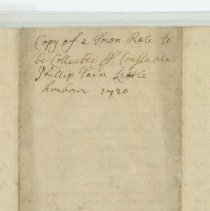 Copy of a Town Rate to
be Collected By Constable
Phillip Pain Little
harbour 1720